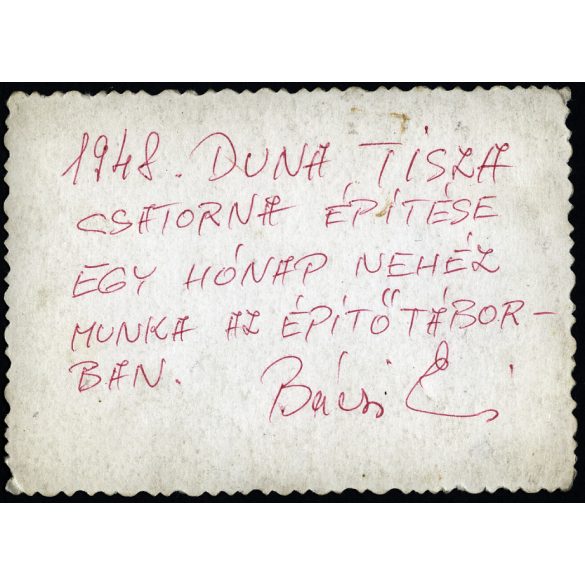 1948. DUNA TISZA
CSATORNA ÉPÍTÉSE
EGY HÓNAP NEHÉZ
MUNKA AZ ÉPÍTŐTÁBOR-
BAN.
Bácsi